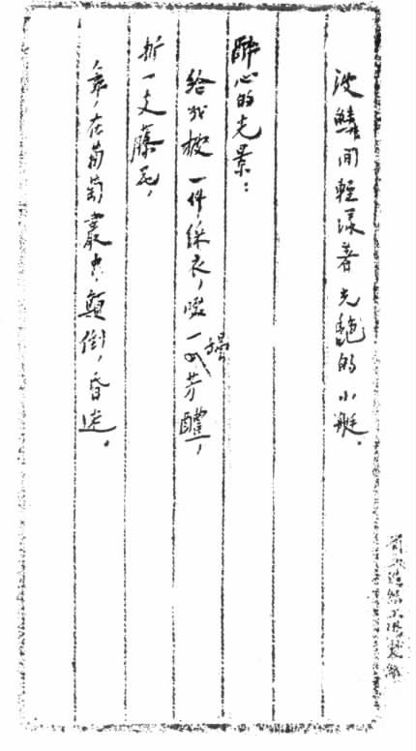 波鱗間輕漾著光艷的小艇。
醉心的光景：
給我披一件綵衣，啜一罎芳醴，
折一支藤花，
舞，在葡萄叢中，顛倒，昏迷。